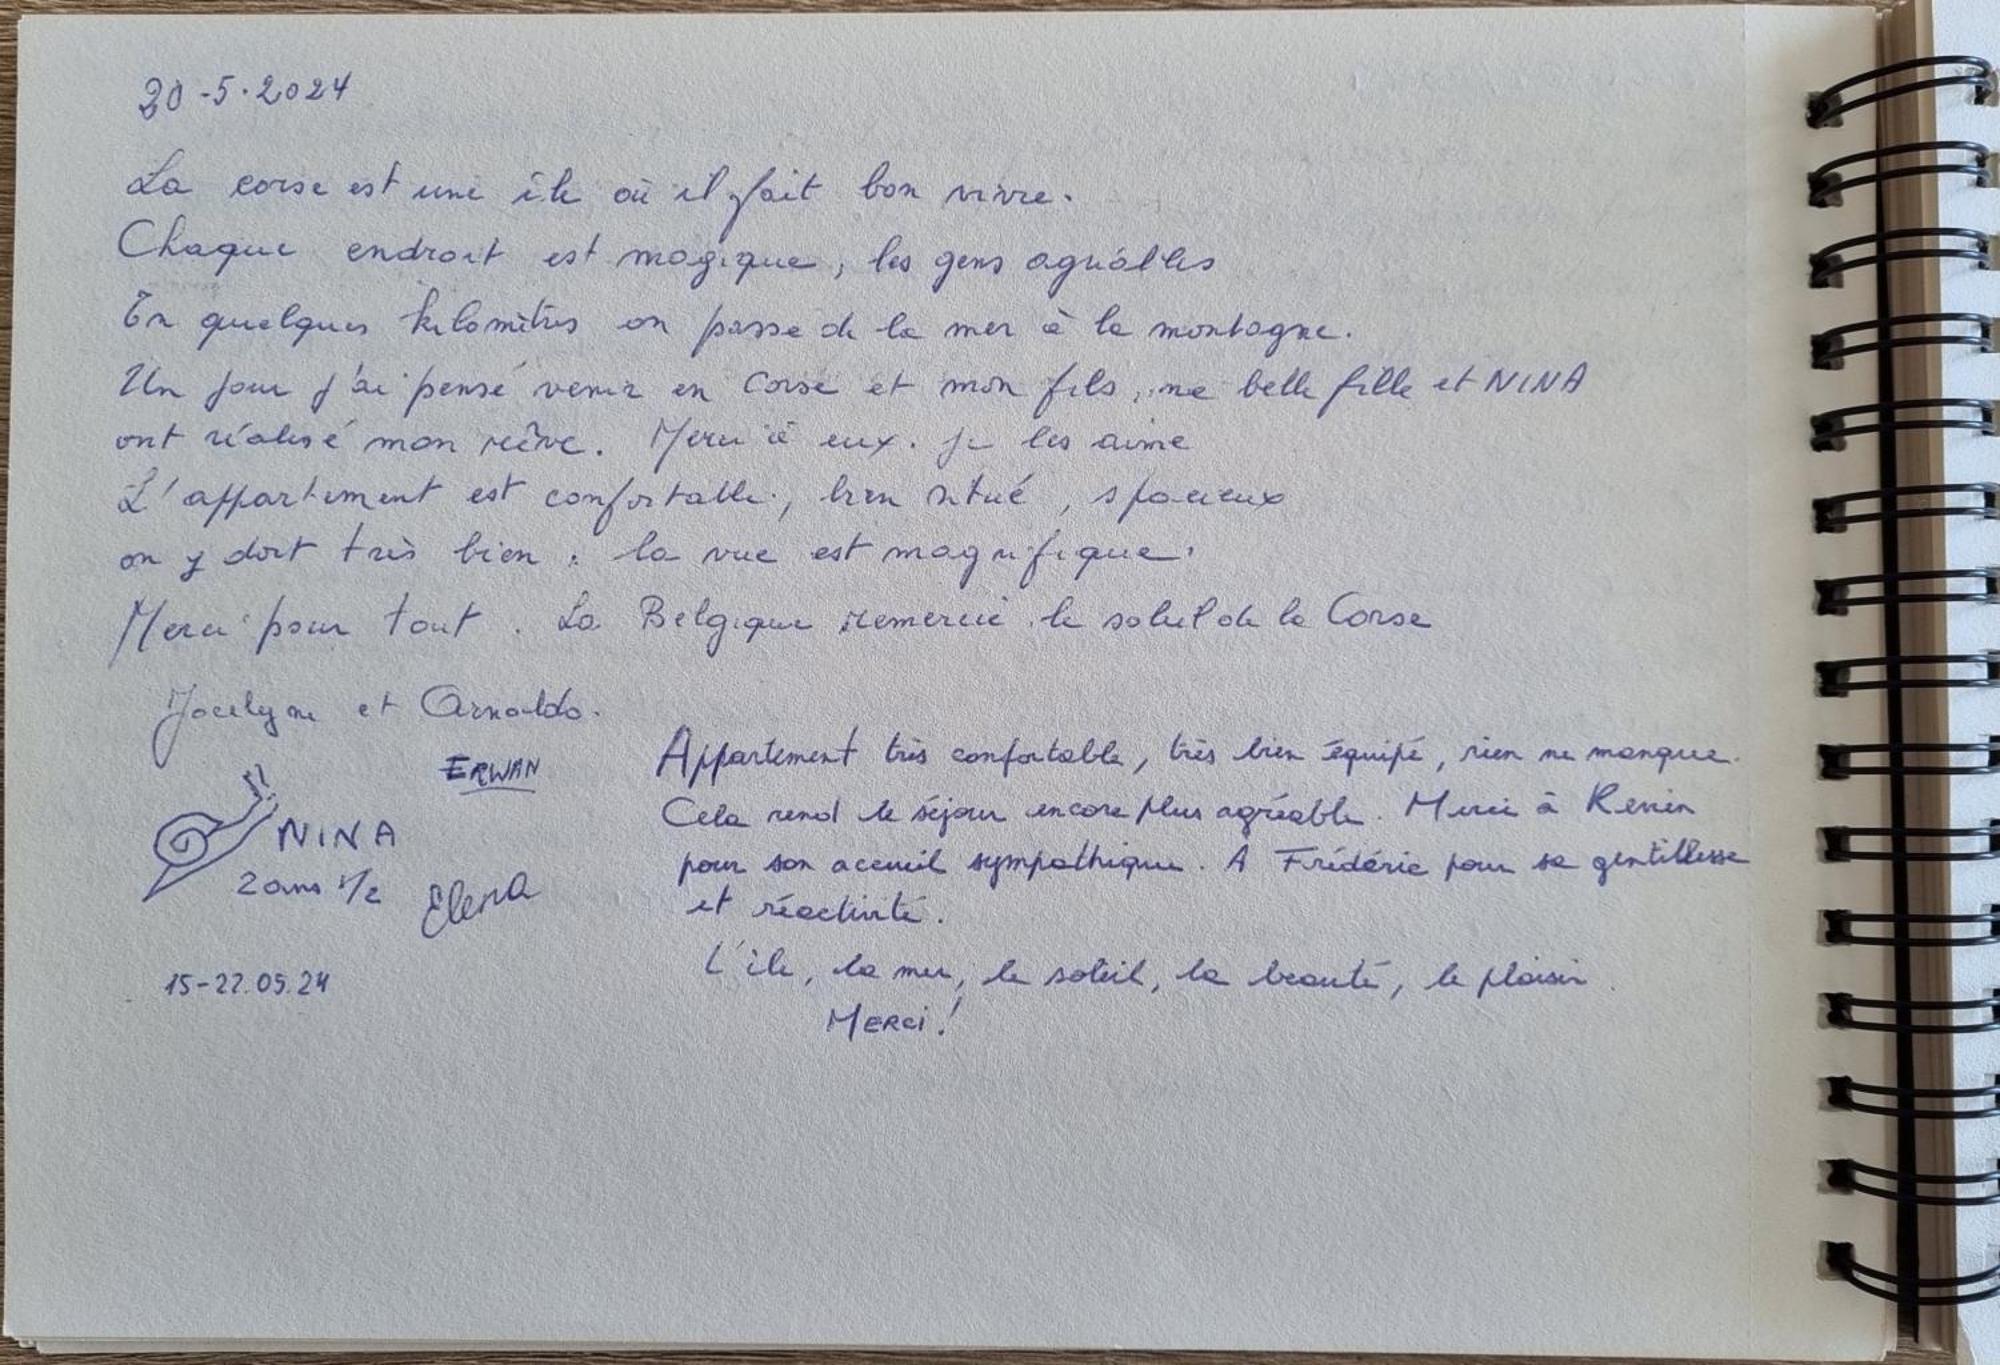 20-5-2024
La corse est une île où il fait bon vivre.
Chaque endroit est magique, les gens agréables
En quelques kilomètres on passe de la mer à la montagne.
Un jour j'ai pensé venir en Corse et mon fils, ma belle fille et NINA
ont réalisé mon rêve. Merci à eux. je les aime
L'appartement est confortable, bien situé, spacieux
on y dort très bien, la vue est magnifique.
Merci pour tout. La Belgique remercie le soleil de la Corse
Jocelyne et Arnaldo.
ERWAN
NINA
2 ans 1/2
Elena
15-22.05.24
Appartement très confortable, très bien équipé, rien ne manque.
Cela rend le séjour encore plus agréable. Merci à
pour son accueil sympathique. A Frédéric pour sa gentillesse
et réactivité.
L'île, la mer, le soleil, la beauté, le plaisir.
MERCI!